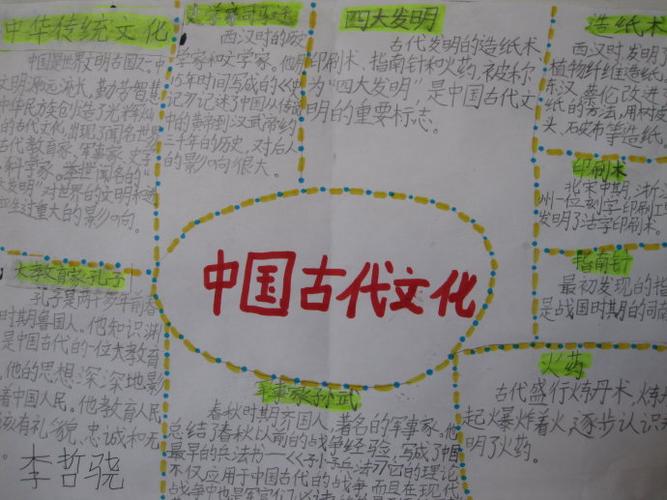 中华传统文化
中国是世界文明古国之一,中
文明源远流长,勤劳智慧
中华民族创造了光辉灿
的古代文化,出现了闻名世界
古代教育家、军事家、文学
科学家。举世闻名的"
发明"对世界的文明和进
产生过重大的影响。
史学家司马迁
西汉时的历
学家和文学家。他用
15年时间写成的《史
记》,记述了中国从传说
中的黄帝到汉武帝约
三千年的历史,对后人
的影响很大。
四大发明
古代发明的造纸术
印刷术、指南针和火药,被称
为"四大发明"是中国古代文
明的重要标志。
造纸术
西汉时发明了
植物纤维造纸,
东汉 蔡伦改进
纸的方法,用树皮
头、石皮布等造纸。
印刷术
北宋中期,浙
州一位刻字印刷工
发明了活字印刷术。
指南针
最初发现的指
是战国时期的司南
火药
古代盛行炼丹术,炼丹
起火爆炸着火,逐步认识
明了火药。
中国古代文化
大教育家孔子
孔子是两千多年前春
时期鲁国人。他知识渊
是中国古代的一位大教育
他的思想深深地影
着中国人民。他教育人民
该有礼貌、忠诚和
李哲骁
军事家孙武
春秋时期齐国人,著名的军事家。他
总结了春秋以前的战争经验,写成了中国
最早的兵法书——《孙子兵法》。它的理论
不仅应用于中国古代的战争,而且在现代
战争中也是军官们必读